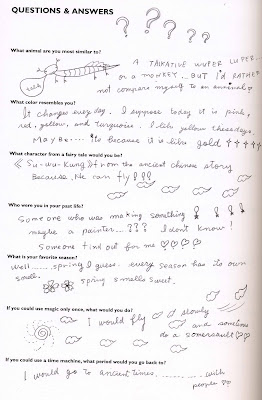 QUESTIONS & ANSWERS
? ? ? ? ?
What animal are you most similar to?
A TALKATIVE WUPER LUPER..
or a MONKEY.. BUT I'D RATHER
not compare myself to an animal
What color resembles you?
It changes everyday. I suppose today it is pink,
red, yellow, and turquoise. I like yellow these days.
Maybe.... its because it is like gold ↑↑↑↑↑
What character from a fairy tale would you be?
"Su-wu-Kung" from the ancient chinese story
Because. He can fly!!!
Who were you in your past life?
Someone who was making something
maybe a painter...??? I don't know!
Someone find out for me ♡♡♡♡
What is your favorite season?
Well......spring I guess. every season has its own
smell. spring smells sweet.
If you could use magic only once, what would you do?
I would fly slowly
and sometimes
do a somersault ♡
If you could use a time machine, what period would you go back to?
I would go to ancient times............with
people ♡♡